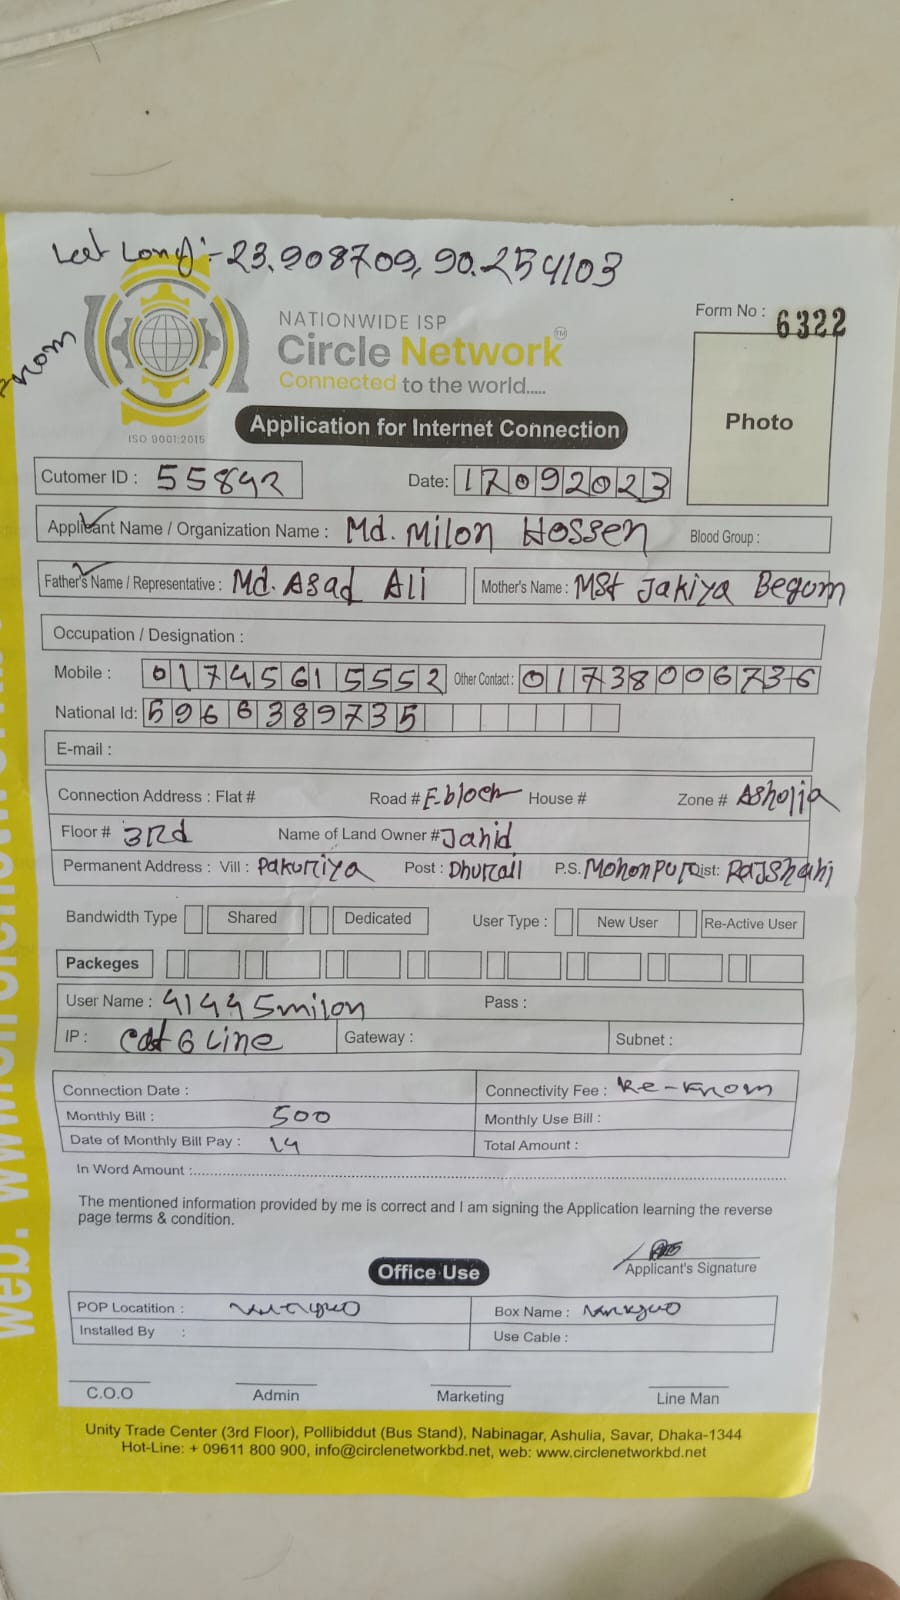 Lat Long:- 23.908709, 90.254103
NATIONWIDE ISP
Circle Network TM
Connected to the world.....
ISO 9001:2015
Form No : 6322
Photo
Application for Internet Connection
Cutomer ID : 55892 Date: 17092023
Applicant Name / Organization Name : Md. Milon Hossen Blood Group :
Father's Name / Representative : Md. Asad Ali Mother's Name : MSt Jakiya Begom
Occupation / Designation :
Mobile : 01745615552 Other Contact : 01738006736
National Id: 5966389735
E-mail :
Connection Address : Flat # Road # E-bloch House # Zone # Asholia
Floor # 3Rd Name of Land Owner # Jahid
Permanent Address : Vill : Pakuriya Post : Dhurail P.S. Mohonpur Dist: Rajshahi
Bandwidth Type Shared Dedicated User Type : New User Re-Active User
Packeges
User Name : 41445milon Pass :
IP : Cat 6 Line Gateway : Subnet :
Connection Date : Connectivity Fee : Re-
Monthly Bill : 500 Monthly Use Bill :
Date of Monthly Bill Pay : 14 Total Amount :
In Word Amount :
The mentioned information provided by me is correct and I am signing the Application learning the reverse
page terms & condition.
Applicant's Signature
Office Use
POP Locatition : Box Name :
Installed By : Use Cable :
C.O.O Admin Marketing Line Man
Unity Trade Center (3rd Floor), Pollibiddut (Bus Stand), Nabinagar, Ashulia, Savar, Dhaka-1344
Hot-Line: + 09611 800 900, info@circlenetworkbd.net, web: www.circlenetworkbd.net